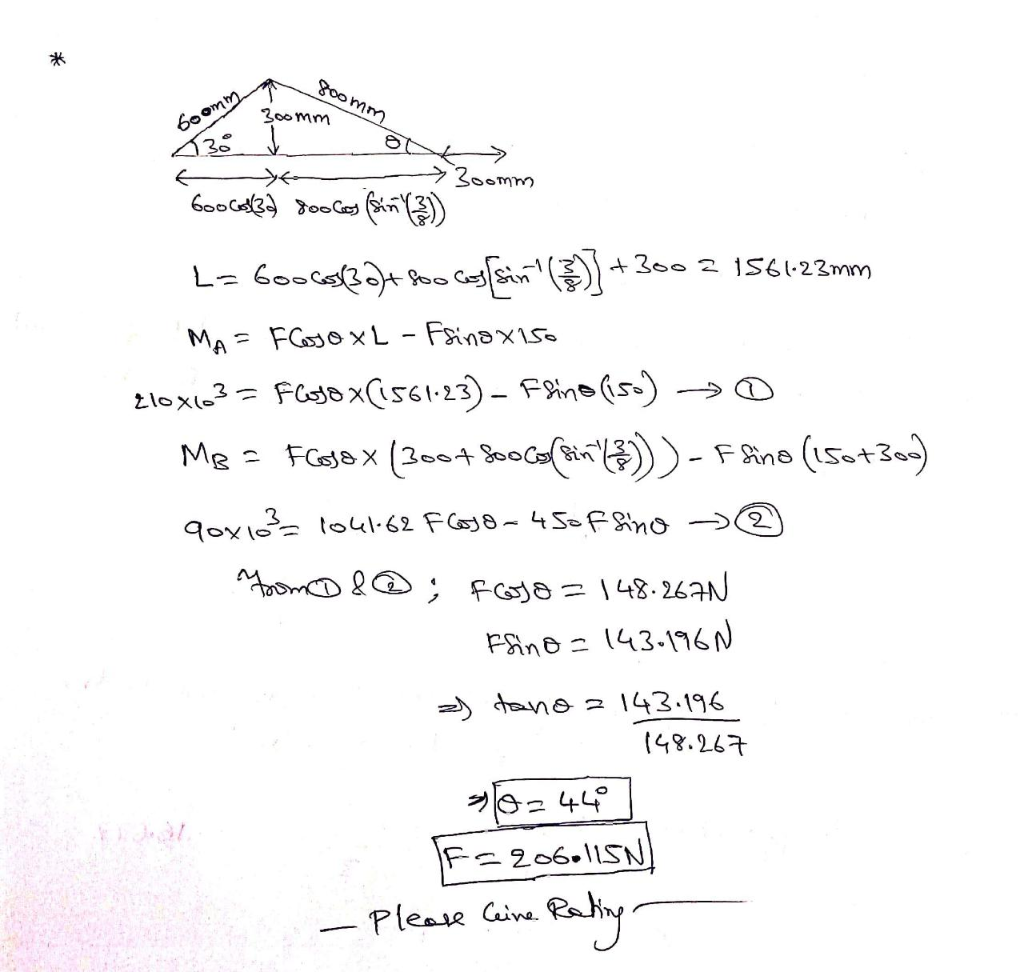 *
600mm 800mm
300mm
30° θ
300mm
600cos(30) 800cos(sin⁻¹(3/8))
L = 600cos(30)+800cos[sin⁻¹(3/8)]+300 = 1561.23mm
MA = Fcosθ×L - Fsinθ×150
210×10³ = Fcosθ×(1561.23) - Fsinθ(150) → ①
MB = Fcosθ×(300+800cos(sin⁻¹(3/8))) - Fsinθ(150+300)
90×10³ = 1041.62 Fcosθ - 450Fsinθ → ②
From ① & ② ; Fcosθ = 148.267N
Fsinθ = 143.196N
⇒ tanθ = 143.196
148.267
⇒ θ = 44°
F = 206.115N
— Please Give Rating —